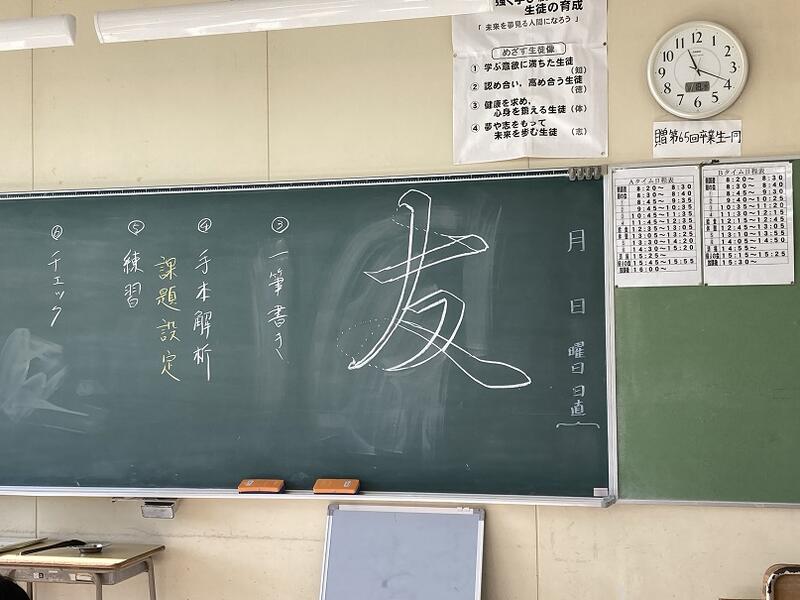 生徒の育成
「未来を夢見る人間になろう」
めざす生徒像
① 学ぶ意欲に満ちた生徒（知）
② 認め合い、高め合う生徒（徳）
③ 健康を求め、
心身を鍛える生徒（体）
④ 夢や志をもって
未来を歩む生徒（志）
12 1 2 3 4 5 6 7 8 9 10 11
贈 第65回卒業生一同
Aタイム日程表
8:20～ 8:30
8:30～ 8:40
9:45～10:35
10:45～11:35
11:45～12:35
12:35～13:05
13:05～13:25
13:30～14:20
15:25～
15:45～15:55
16:00～
Bタイム日程表
8:20～ 8:30
8:30～ 8:40
9:40～10:25
10:35～11:20
11:30～12:15
12:15～12:45
14:55～
15:15～15:25
15:30～
月 日 曜日 日直
友
③ 一筆書き
④ 手本解析
課題設定
⑤ 練習
⑥ チェック